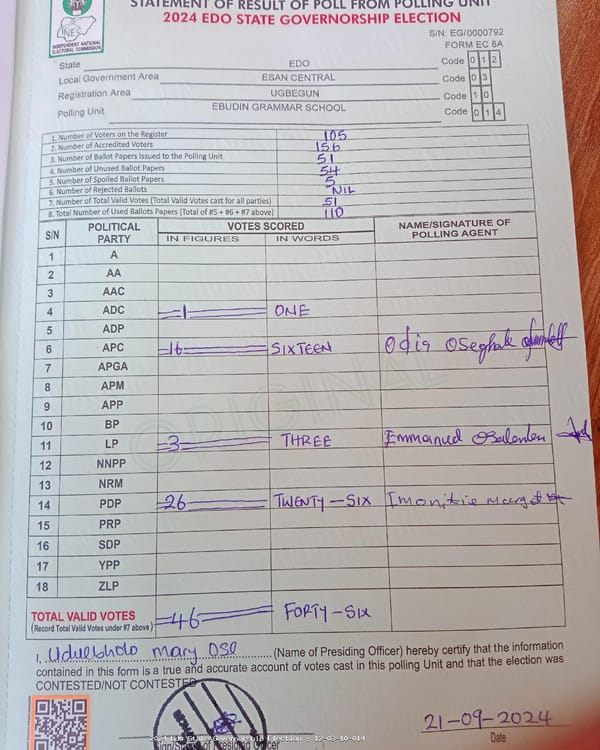 STATEMENT OF RESULT OF POLL FROM POLLING UNIT
2024 EDO STATE GOVERNORSHIP ELECTION
INEC
INDEPENDENT NATIONAL
ELECTORAL COMMISSION
S/N: EG/0000792
FORM EC 8A
State EDO Code 0 1 2
Local Government Area ESAN CENTRAL Code 0 3
Registration Area UGBEGUN Code 1 0
Polling Unit EBUDIN GRAMMAR SCHOOL Code 0 1 4
1. Number of Voters on the Register 105
2. Number of Accredited Voters 156
3. Number of Ballot Papers Issued to the Polling Unit 51
4. Number of Unused Ballot Papers 54
5. Number of Spoiled Ballot Papers 5
6. Number of Rejected Ballots NIL
7. Number of Total Valid Votes (Total Valid Votes cast for all parties) 51
8. Total Number of Used Ballots Papers (Total of #5 + #6 + #7 above) 110
S/N POLITICAL PARTY VOTES SCORED NAME/SIGNATURE OF POLLING AGENT
IN FIGURES IN WORDS
1 A
2 AA
3 AAC
4 ADC 1 ONE
5 ADP
6 APC 16 SIXTEEN Odia Oseghale
7 APGA
8 APM
9 APP
10 BP
11 LP 3 THREE Emmanuel
12 NNPP
13 NRM
14 PDP 26 TWENTY-SIX
15 PRP
16 SDP
17 YPP
18 ZLP
ORIGINAL
TOTAL VALID VOTES 46 FORTY-SIX
(Record Total Valid Votes under #7 above)
I, Uduebholo mary ose (Name of Presiding Officer) hereby certify that the information
contained in this form is a true and accurate account of votes cast in this polling Unit and that the election was
CONTESTED/NOT CONTESTED
21-09-2024
2024 Edo State Governorship Election - 12-03-10-014
Sign/Stamp of Presiding Officer Date